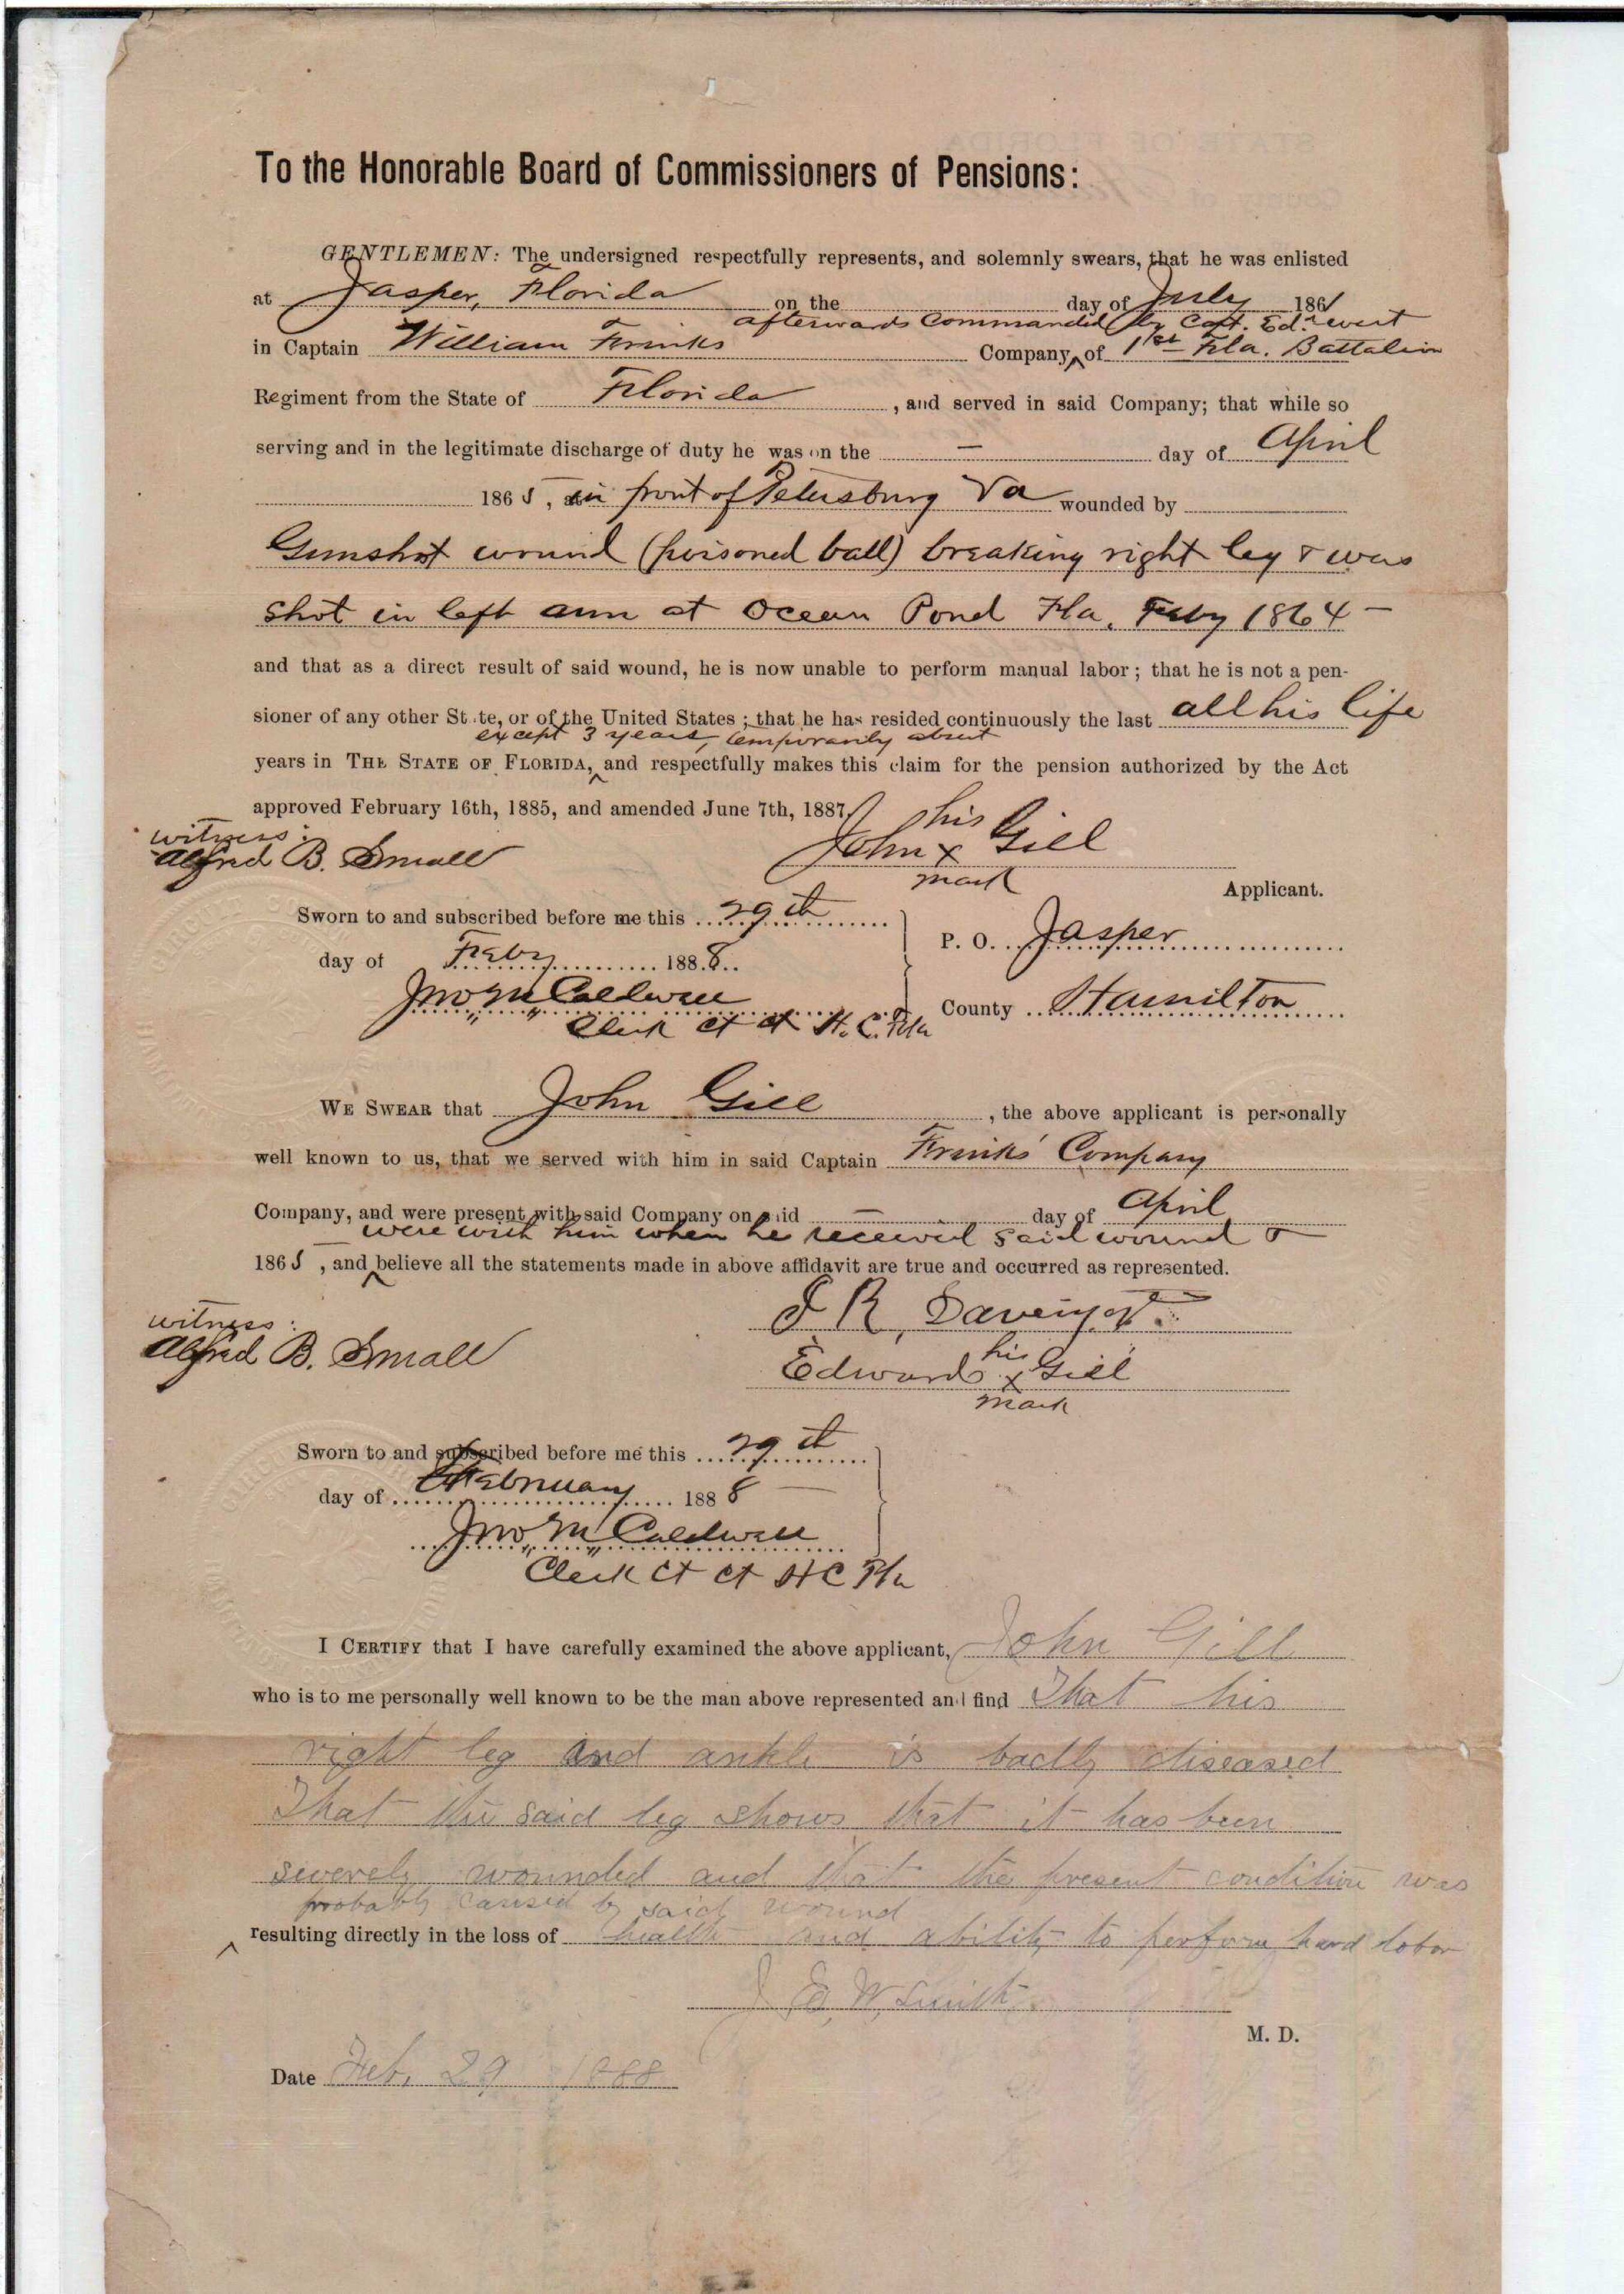 To the Honorable Board of Commissioners of Pensions:
GENTLEMEN: The undersigned respectfully represents, and solemnly swears, that he was enlisted
at Jasper, Florida on the day of July 1861
afterwards Commanded by Capt. Ed.
in Captain William Frinks Company, of 1st Fla. Battalion
Regiment from the State of Florida, and served in said Company; that while so
serving and in the legitimate discharge of duty he was on the — day of April
1865, in front of Petersburg Va wounded by
Gunshot wound (poisoned ball) breaking right leg & was
shot in left arm at Ocean Pond Fla. Feby 1864 —
and that as a direct result of said wound, he is now unable to perform manual labor; that he is not a pen-
sioner of any other State, or of the United States; that he has resided continuously the last all his life
except 3 years, temporarily absent
years in THE STATE OF FLORIDA, and respectfully makes this claim for the pension authorized by the Act
approved February 16th, 1885, and amended June 7th, 1887.
witness:
Alfred B. Small
his
John x Gill
mark
Applicant.
Sworn to and subscribed before me this 29th
day of Feby 1888
Jno M Caldwell
Clerk Ct Ct H. C. Fla
P. O. Jasper
County Hamilton
WE SWEAR that John Gill, the above applicant is personally
well known to us, that we served with him in said Captain Frinks' Company
Company, and were present with said Company on said — day of April
were with him when he received said wound &
1865, and believe all the statements made in above affidavit are true and occurred as represented.
witness:
Alfred B. Small
J R Davenport
his
Edward x Gill
mark
Sworn to and subscribed before me this 29th
day of February 1888
Jno M Caldwell
Clerk Ct Ct H C Fla
I CERTIFY that I have carefully examined the above applicant, John Gill
who is to me personally well known to be the man above represented and find That his
right leg and ankle is badly diseased
That the said leg shows that it has been
severely wounded and that the present condition was
probably caused by said wound
resulting directly in the loss of health and ability to perform hard labor
J E, W, Smith
M. D.
Date Feb. 29 1888